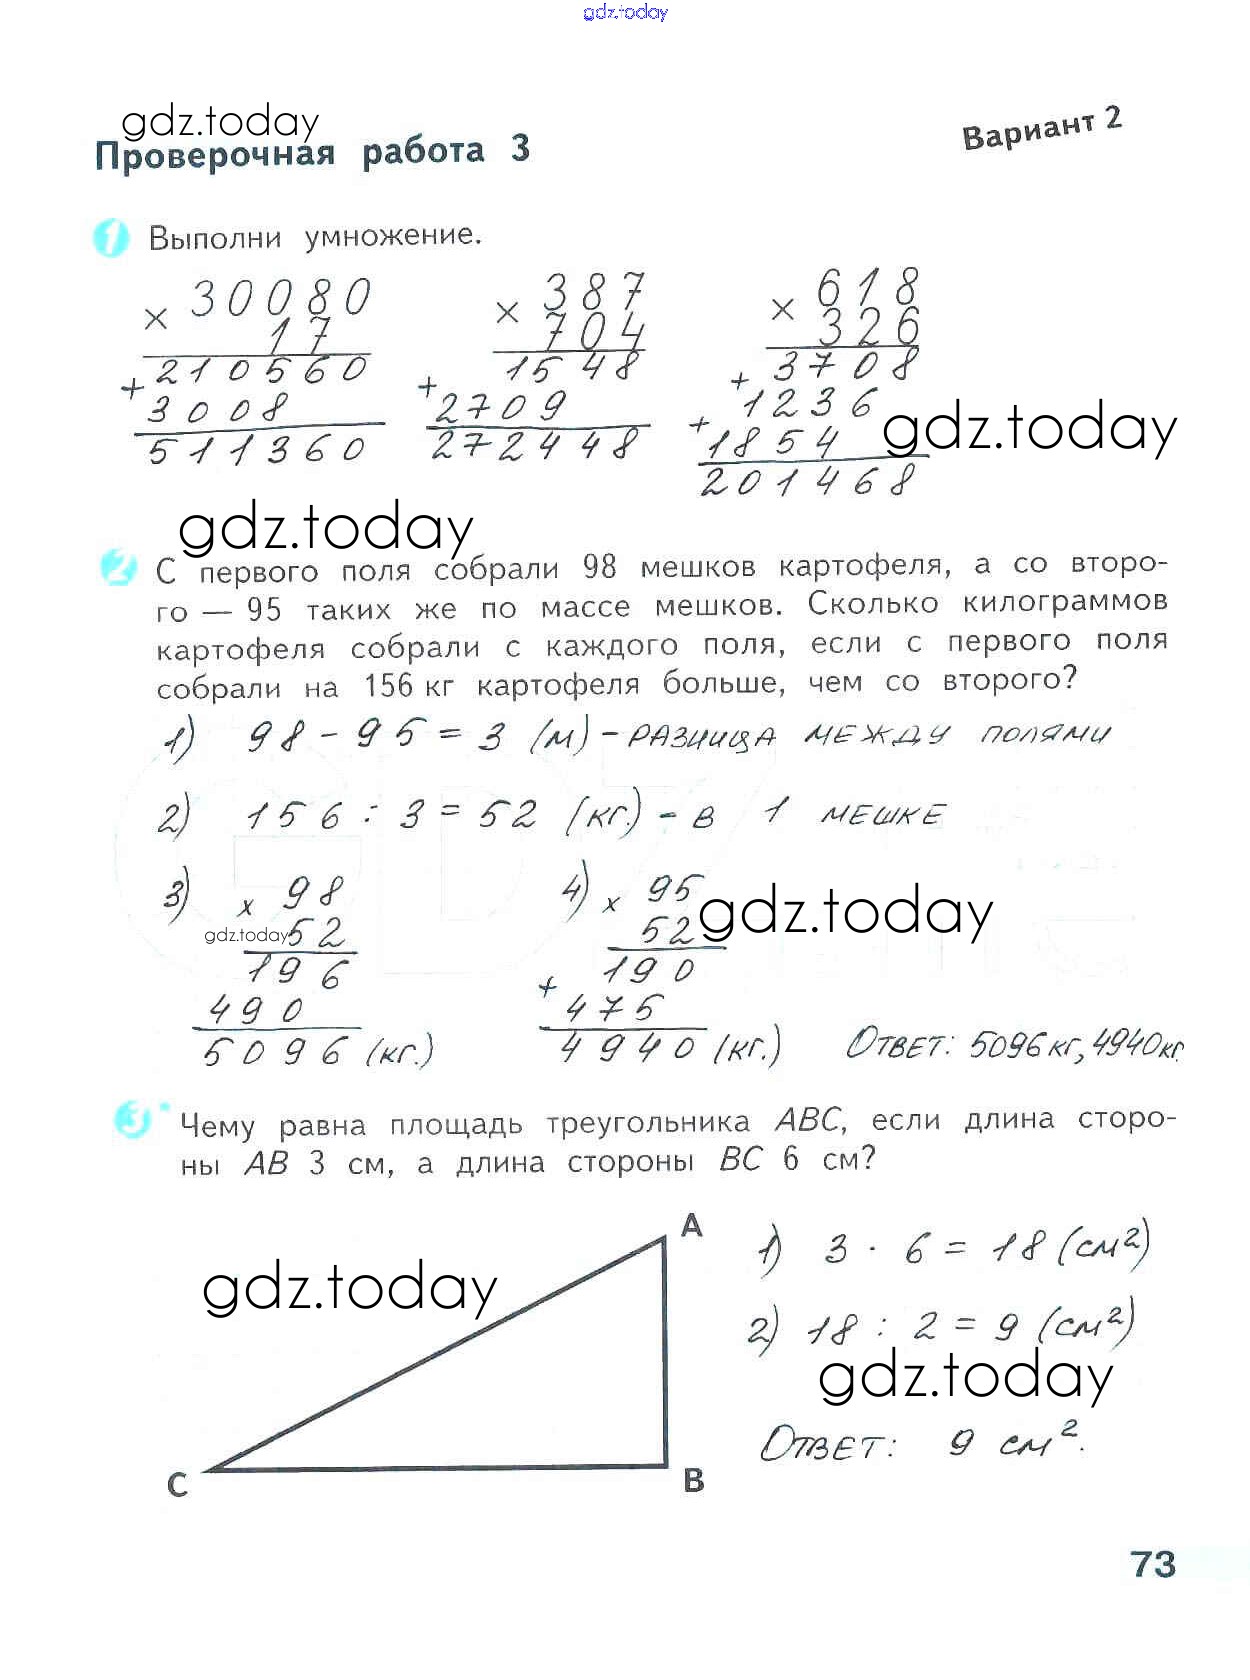 gdz.today
gdz.today
Проверочная работа 3
Вариант 2
1 Выполни умножение.
× 30080
17
+ 210560
3008
511360
× 387
704
+ 1548
2709
272448
× 618
326
+ 3708
+ 1236
1854
201468
gdz.today
gdz.today
2 С первого поля собрали 98 мешков картофеля, а со второ-
го — 95 таких же по массе мешков. Сколько килограммов
картофеля собрали с каждого поля, если с первого поля
собрали на 156 кг картофеля больше, чем со второго?
1) 98 - 95 = 3 (м) - разница между полями
2) 156 : 3 = 52 (кг.) - в 1 мешке
3) × 98
52
196
490
5096 (кг.)
gdz.today
4) × 95
52
+ 190
475
4940 (кг.)
gdz.today
Ответ: 5096 кг, 4940 кг.
3* Чему равна площадь треугольника ABC, если длина сторо-
ны AB 3 см, а длина стороны BC 6 см?
A
B
C
gdz.today
1) 3 · 6 = 18 (см²)
2) 18 : 2 = 9 (см²)
gdz.today
Ответ: 9 см².
73